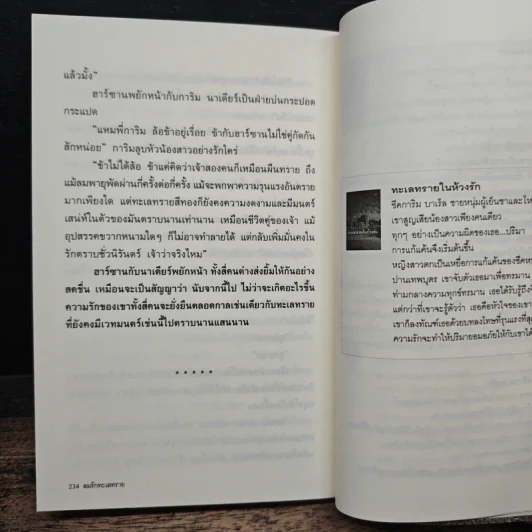 แล้วมั้ง"
ฮาร์ซานพยักหน้ากับการิม นาเดียร์เป็นฝ่ายบ่นกระปอด
กระแปด
"แหมพี่การิม ล้อข้าอยู่เรื่อย ข้ากับฮาร์ซานไม่ใช่คู่กัดกัน
สักหน่อย" การิมลูบหัวน้องสาวอย่างรักใคร่
"ข้าไม่ได้ล้อ ข้าแค่คิดว่าเจ้าสองคนก็เหมือนผืนทราย ถึง
แม้ลมพายุพัดผ่านกี่ครั้งต่อกี่ครั้ง แม้จะพกพาความรุนแรงอันตราย
มากเพียงใด แต่ทะเลทรายสีทองก็ยังคงความงดงามและมีมนตร์
เสน่ห์ในตัวของมันตราบนานเท่านาน เหมือนชีวิตคู่ของเจ้า แม้
อุปสรรคขวากหนามใดๆ ก็ไม่อาจทำลายได้ แต่กลับเพิ่มมั่นคงใน
รักตราบชั่วนิรันดร์ เจ้าว่าจริงไหม"
ฮาร์ซานกับนาเดียร์พยักหน้า ทั้งสี่คนต่างส่งยิ้มให้กันอย่าง
สดชื่น เหมือนจะเป็นสัญญาว่า นับจากนี้ไป ไม่ว่าจะเกิดอะไรขึ้น
ความรักของเขาทั้งสี่คนจะยั่งยืนตลอดกาลเช่นเดียวกับทะเลทราย
ที่ยังคงมีเวทมนตร์เช่นนี้ไปตราบนานแสนนาน
* * * * *
234 ลมรักทะเลทราย
ทะเลทรายในห้วงรัก
ชีคการิม บาเร็ล ชายหนุ่มผู้เย็นชาและโห
เขาสูญเสียน้องสาวเพียงคนเดียว
ทุกๆ อย่างเป็นความผิดของเธอ...ปริมา
การแก้แค้นจึงเริ่มต้นขึ้น
หญิงสาวตกเป็นเหยื่อการแก้แค้นของชีคห
ปานเทพบุตร เขาจับตัวเธอมาเพื่อทรมาน
ท่ามกลางความทุกข์ทรมาน เธอได้รับรู้ถึงห
แต่กว่าที่เขาจะรู้ตัวว่า เธอคือหัวใจของเขา
เขาก็ลงทัณฑ์เธอด้วยบทลงโทษที่รุนแรงที่สุด
ความรักจะทำให้ปริมายอมอภัยให้กับเขาได้